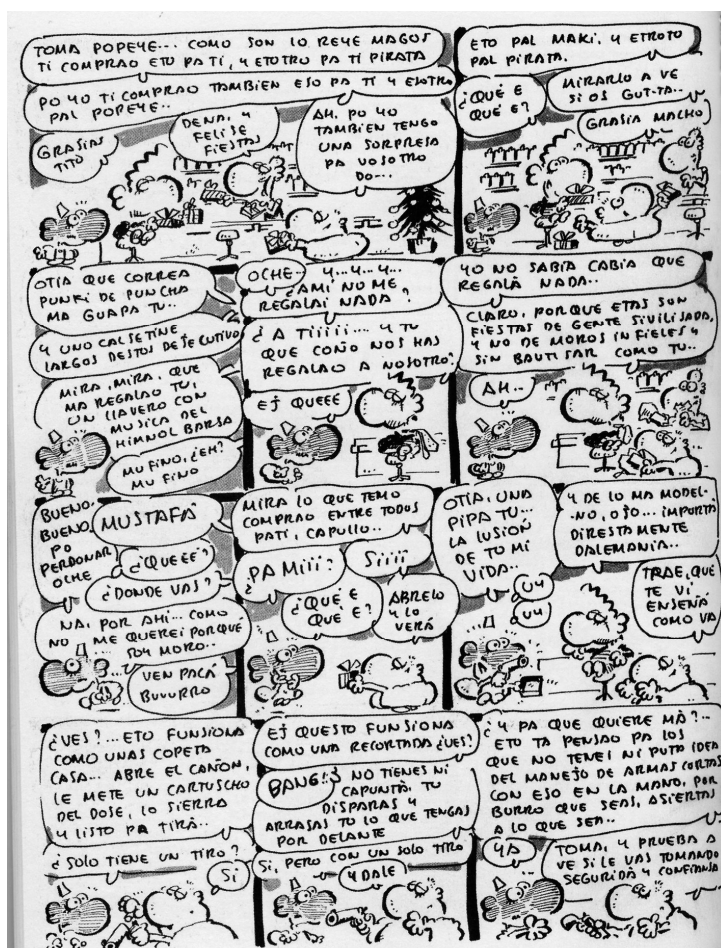 TOMA POPEYE... COMO SON LO REYE MAGOS
TI COMPRAO ETO PA TI, Y ETOTRO PA TI PIRATA
PO YO TI COMPRAO TAMBIEN ESO PA TI Y ELOTRO
PAL POPEYE..
GRASIAS
TITO
DE NA, Y
FELISE
FIESTAS
AH, PO YO
TAMBIEN TENGO
UNA SORPRESA
PA VOSOTRO
DO...
ETO PAL MAKI, Y ETROTO
PAL PIRATA.
¿QUÉ E
QUÉ E?
MIRARLO A VE
SI OS GUT-TA..
GRASIA MACHO
OTIA QUE CORREA
PUNKI DE PUNCHA
MA GUAPA TU..
Y UNO CALSETINE
LARGOS DESTOS DEJECUTIVO
MIRA, MIRA, QUE
MA REGALAO TUI,
UN LLAVERO CON
MUSICA DEL
HIMNOL BARSA
MU FINO, ¿EH?
MU FINO
OCHE.. Y...Y...Y...
¿AMI NO ME
REGALAI NADA?
¿A Tiiiii.... Y TU
QUE COÑO NOS HAS
REGALAO A NOSOTRO?
EJ QUEEE
YO NO SABIA CABIA QUE
REGALÁ NADA..
CLARO, PORQUE ETAS SON
FIESTAS DE GENTE SIVILISADA,
Y NO DE MOROS INFIELES Y
SIN BAUTISAR COMO TU..
AH..
BUENO,
BUENO,
PO
PERDONAR
OCHE
MUSTAFÁ
¿QUEEÉ?
¿DONDE VAS?
NA, POR AHI... COMO
NO ME QUEREI PORQUE
SOY MORO..
VEN PACÁ
BUUURRO
MIRA LO QUE TEMO
COMPRAO ENTRE TODOS
PATI, CAPULLO..
¿PA MIII?
SIIII
¿QUÉ E
QUÉ E?
ABRELO
Y LO
VERÁ
OTIA, UNA
PIPA TU...
LA LUSIÓN
DE TU MI
VIDA..
UY
UY
Y DE LO MA MODEL-
-NO, OJO... IMPORTA
DIRESTAMENTE
DALEMANIA..
TRAE, QUE
TE VI
ENSEÑÁ
COMO VA
¿VES?...ETO FUNSIONA
COMO UNAS COPETA
CASA... ABRE EL CAÑON,
LE METE UN CARTUSCHO
DEL DOSE, LO SIERRA
Y LISTO PA TIRÁ..
¿SOLO TIENE UN TIRO?
SI
EJ QUESTO FUNSIONA
COMO UNA RECORTADA ¿VES?
BANG!!
NO TIENES NI
CAPUNTÁ, TU
DISPARAS Y
ARRASAS TO LO QUE TENGAS
POR DELANTE
SI, PERO CON UN SOLO TIRO
Y DALE
¿Y PA QUE QUIERE MÁ?..
ETO TA PENSAO PA LOS
QUE NO TENEI NI PUTO IDEA
DEL MANEJO DE ARMAS CORTAS
CON ESO EN LA MANO, POR
BURRO QUE SEAS, ASIERTAS
A LO QUE SEA..
YA
TOMA, Y PRUEBA A
VE SI LE VAS TOMANDO
SEGURIDÁ Y CONFIANSA